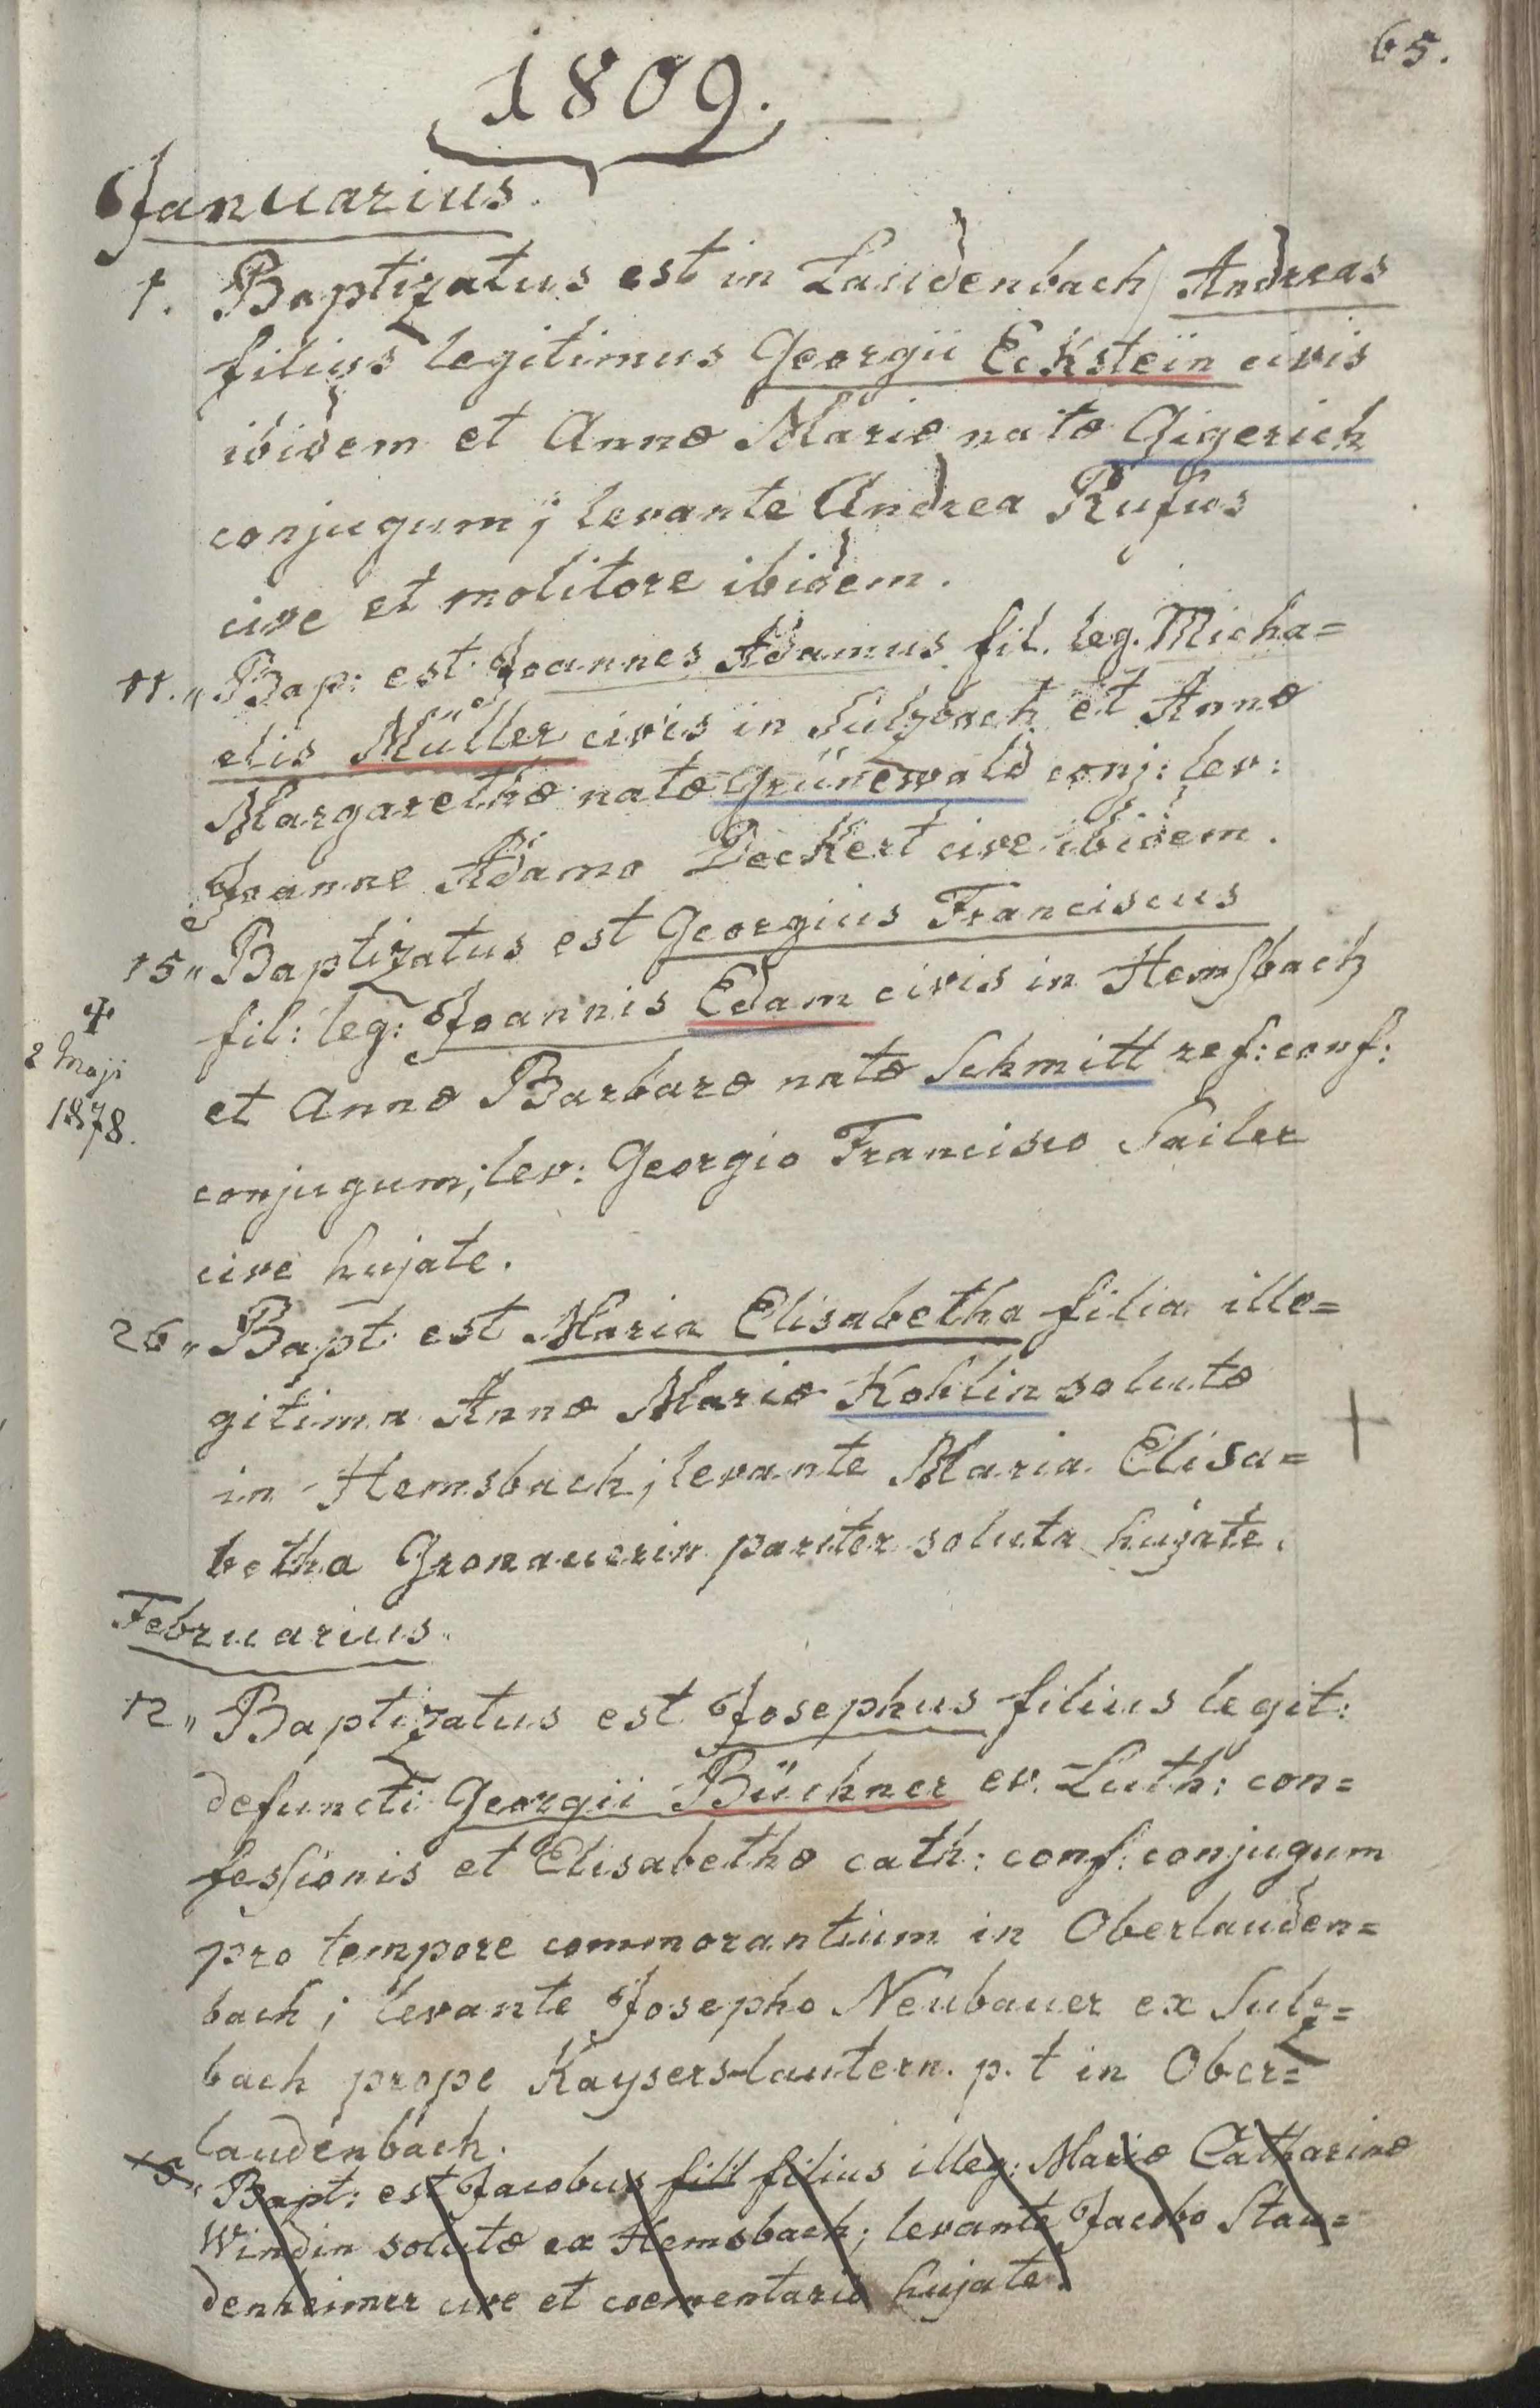 65.
1809.
Januarius.
1. Baptizatus est in Laudenbach Andreas
filius legitimus Georgii Eckstein civis
ibidem et Annæ Mariæ natæ Gigerich
conjugum; levante Andrea Rufus
cive et molitore ibidem.
11.„ Bap: est Joannes Adamus fil. leg. Micha=
elis Müller civis in Sulzbach et Annæ
Margarethæ natæ Grünewald conj: lev:
Joanne Adamo Deckert cive ibidem.
15„ Baptizatus est Georgius Franciscus
fil: leg: Joannis Edam civis in Hemsbach
✝
2 Maji
1878.
et Annæ Barbaræ natæ Schmitt ref: conf:
conjugum; lev: Georgio Francisco Sailer
cive hujate.
26„ Bapt: est Maria Elisabetha filia ille=
gitima Annæ Mariæ Kohlin solutæ
+
in Hemsbach; levante Maria Elisa=
betha Gronauerin pariter soluta hujate.
Februarius.
12„ Baptizatus est Josephus filius legit:
defuncti Georgii Büchner ev. Luth: con=
fessionis et Elisabethæ cath: conf: conjugum
pro tempore commorantium in Oberlauden=
bach; levante Josepho Neubauer ex Sulz=
bach prope Kayserslautern. p. t in Ober=
laudenbach.
15„ Bapt: est Jacobus fill filius illeg: Mariæ Catharinæ
Windin solutæ ex Hemsbach; levante Jacobo Stau=
denheimer cive et coementario hujate.